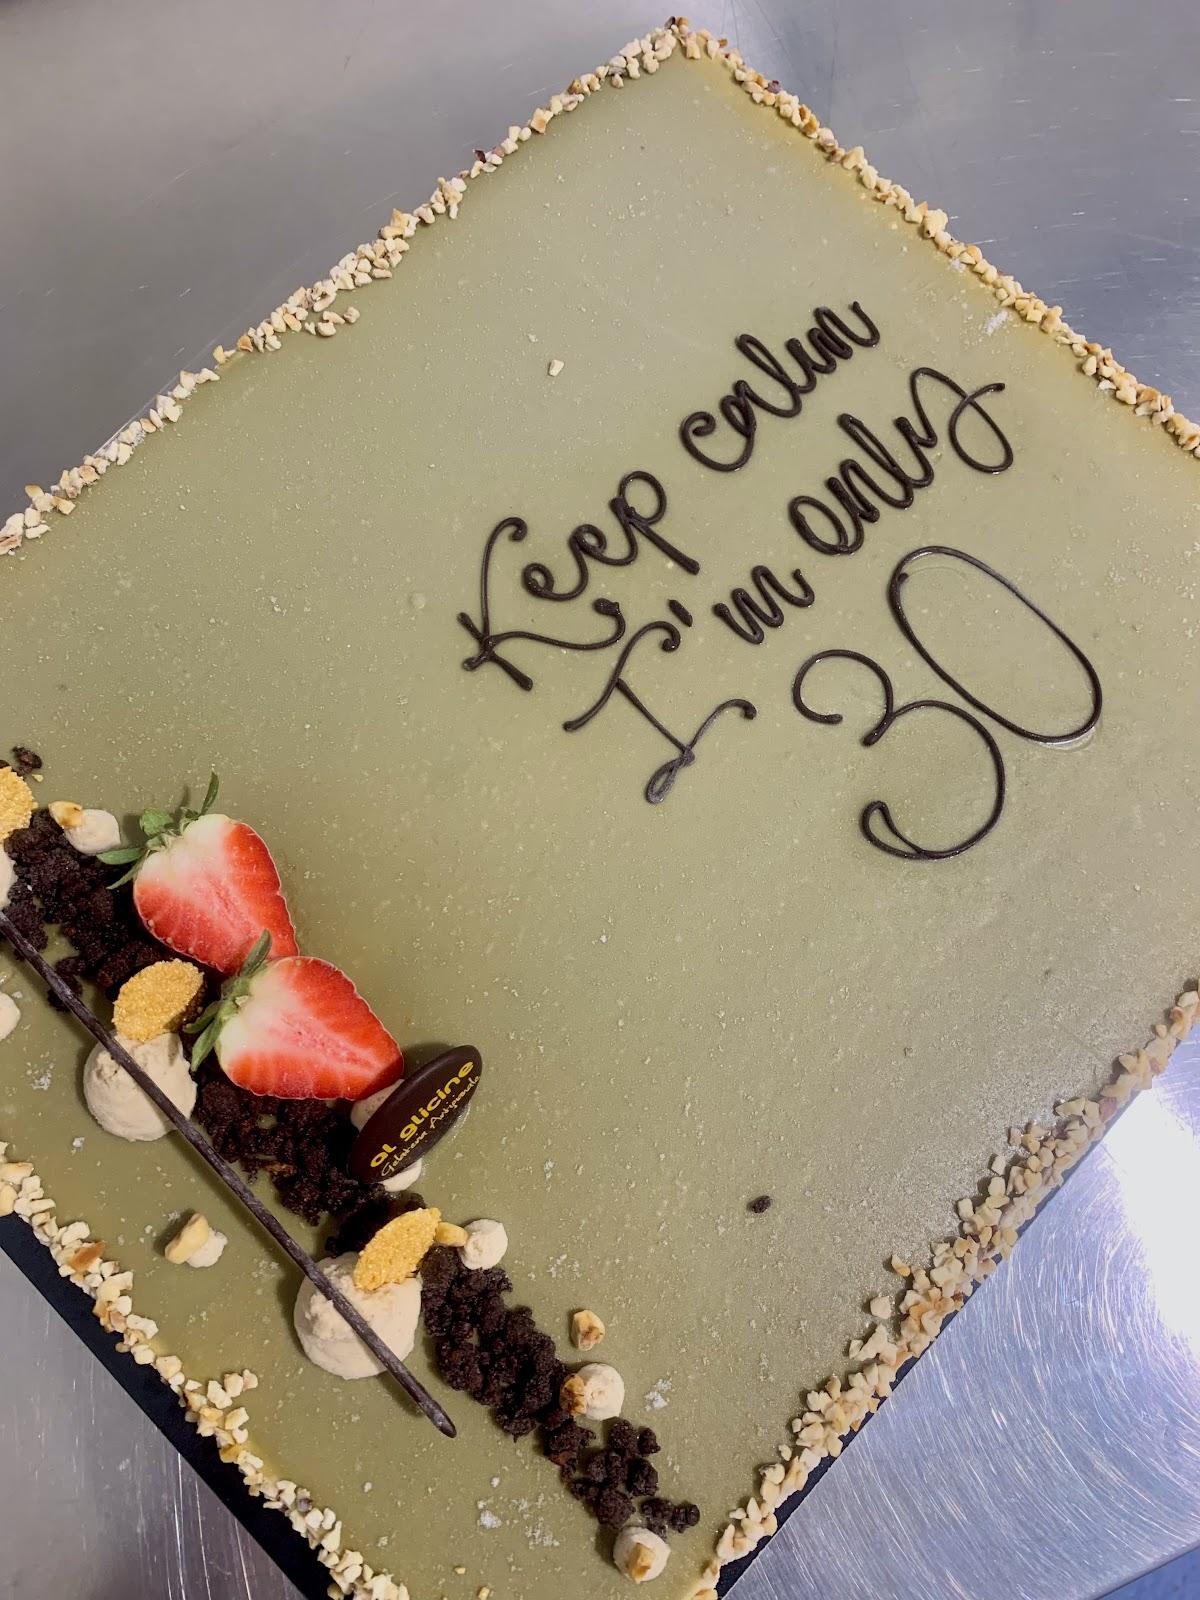 Keep calm
I'm only
30
al glicine
Gelateria Artigianale